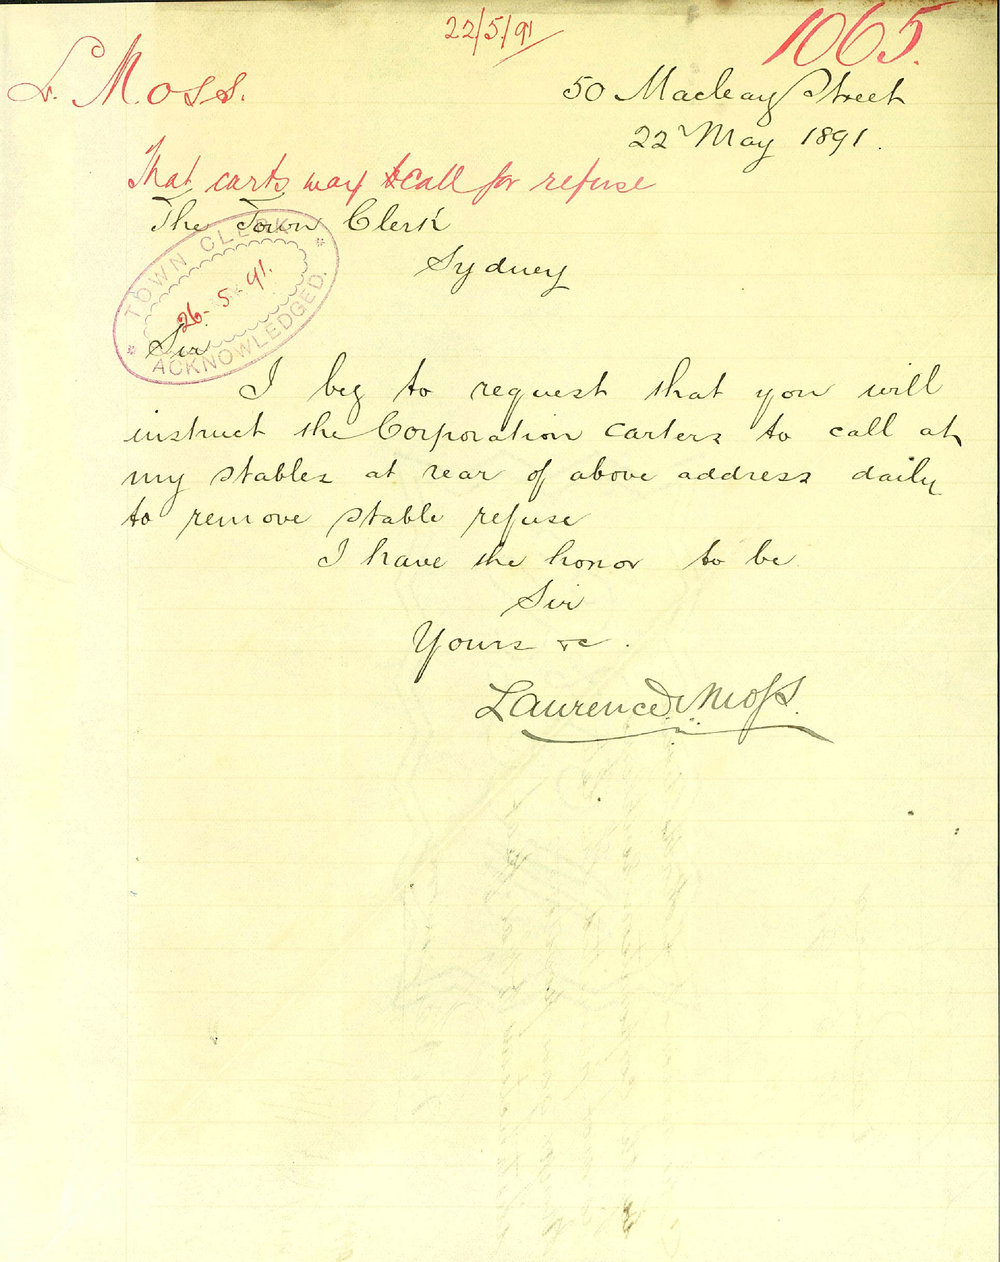 22/5/91
1065.
L. Moss.
50 Macleay Street
22 May 1891.
That carts may call for refuse
The Town Clerk
Sydney
TOWN CLERK
26-5-91.
ACKNOWLEDGED.
Sir
I beg to request that you will
instruct the Corporation carters to call at
my stables at rear of above address daily
to remove stable refuse
I have the honor to be
Sir
Yours &c.
Laurence Moss.